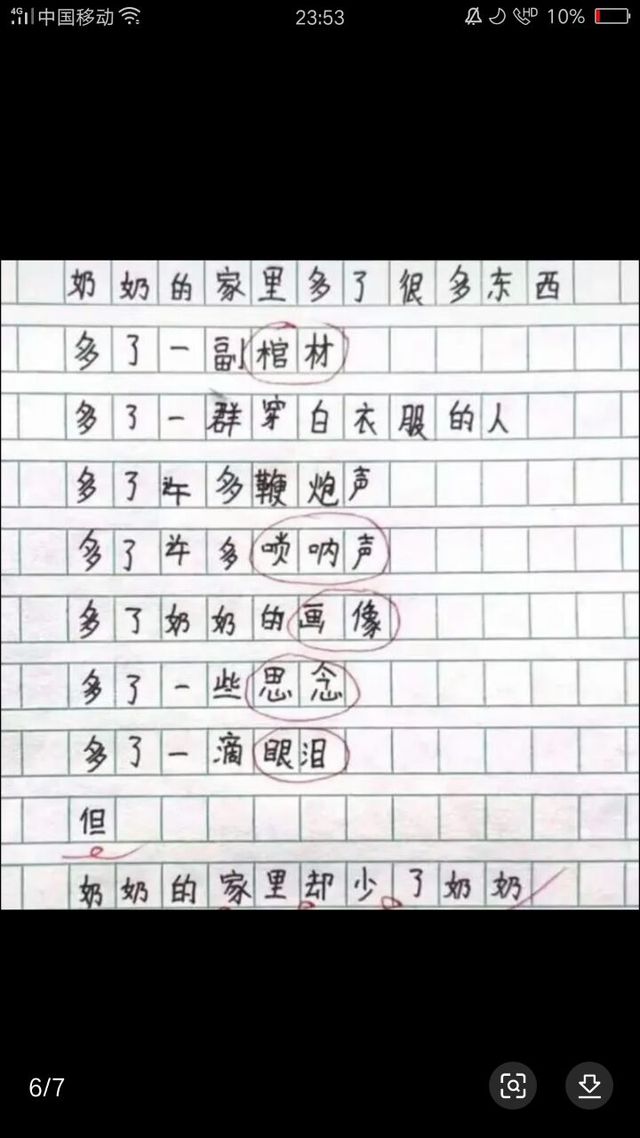 4G 中国移动 23:53 HD 10%
奶奶的家里多了很多东西
多了一副棺材
多了一群穿白衣服的人
多了许多鞭炮声
多了许多唢呐声
多了奶奶的画像
多了一些思念
多了一滴眼泪
但
奶奶的家里却少了奶奶
6/7